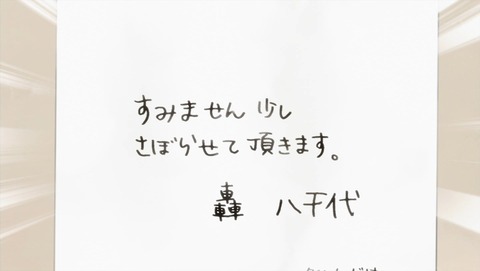 すみません 少し
さぼらせて 頂きます。
轟 八千代